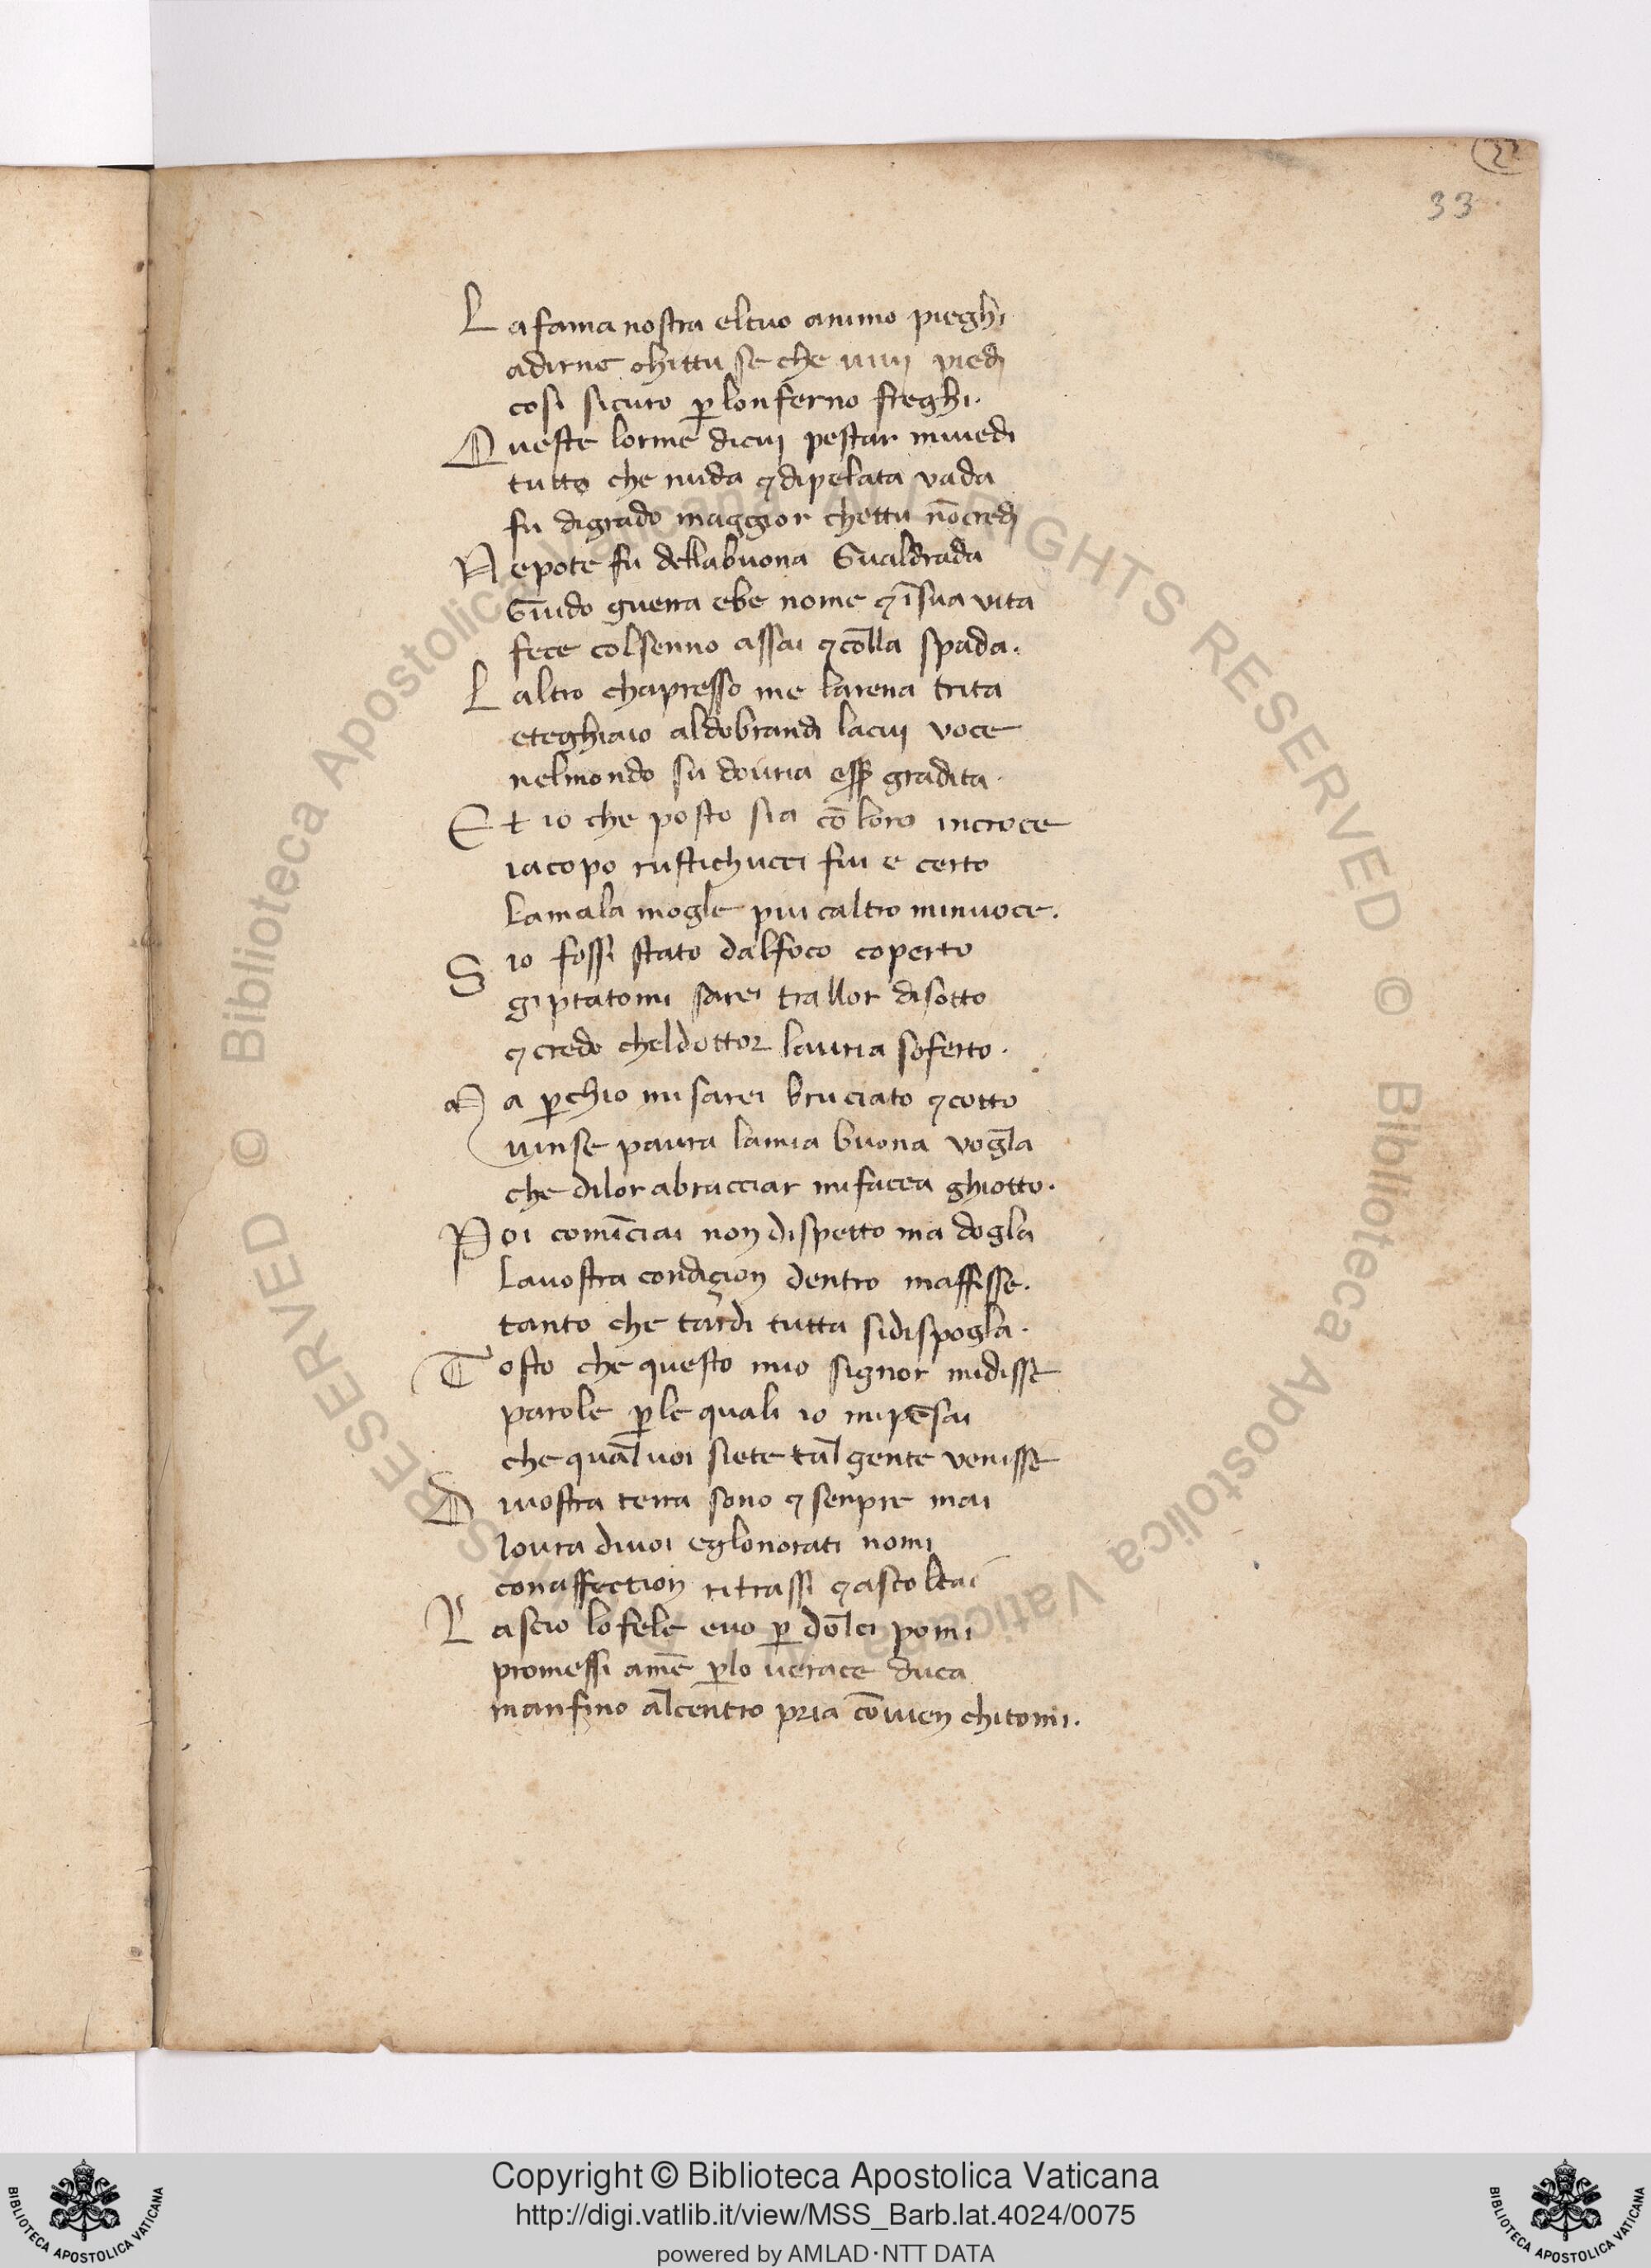 22
33
L a fama nostra eltuo animo pieghi
adirne chittu se che uiui piedi
cosi sicuro ꝑ lonferno freghi.
Q ueste lorme dicui pestar miuedi
tutto che nuda ⁊ dipelata vada
fu digrado maggior chettu nōcredi
N epote fu dellabuona Gualdrada
Guido guerra ebe nome ⁊ ī sua uita
fece colsenno assai ⁊ cōlla spada.
L altro chapresso me larena trita
eteghiaio aldobrandi lacui voce
nelmondo su douria essꝑ gradita.
E t io che posto sia cō loro incroce
iacopo rustichucci fui e certo
Lamala mogle piu caltro minuoce.
S io fossi stato dalfoco coperto
giptatomi sarei trallor disotto
⁊ credo cheldottor lauria soferto.
M a ꝑchio mi sarei bruciato ⁊ cotto
uinse paura lamia buona vogla
che dilor abracciar mifacea ghiotto.
P oi comīciai non dispetto ma dogla
Lauostra condiçion dentro maffisse.
tanto che tardi tutta sidispogla.
T osto che questo mio signor midisse
parole ꝑle quali io mipēsai
che qual uoi siete tal gente venisse
D iuostra terra sono ⁊ senpre mai
loura diuoi eglonorati nomi
conaffection ritrassi ⁊ ascoltai
L ascio lofele euo ꝑ dolci pomi
promessi amē ꝑlo uerace duca
manfino alcentro pria cōuien chitomi.
Copyright © Biblioteca Apostolica Vaticana
http://digi.vatlib.it/view/MSS_Barb.lat.4024/0075
powered by AMLAD·NTT DATA
BIBLIOTECA APOSTOLICA VATICANA
BIBLIOTECA APOSTOLICA VATICANA